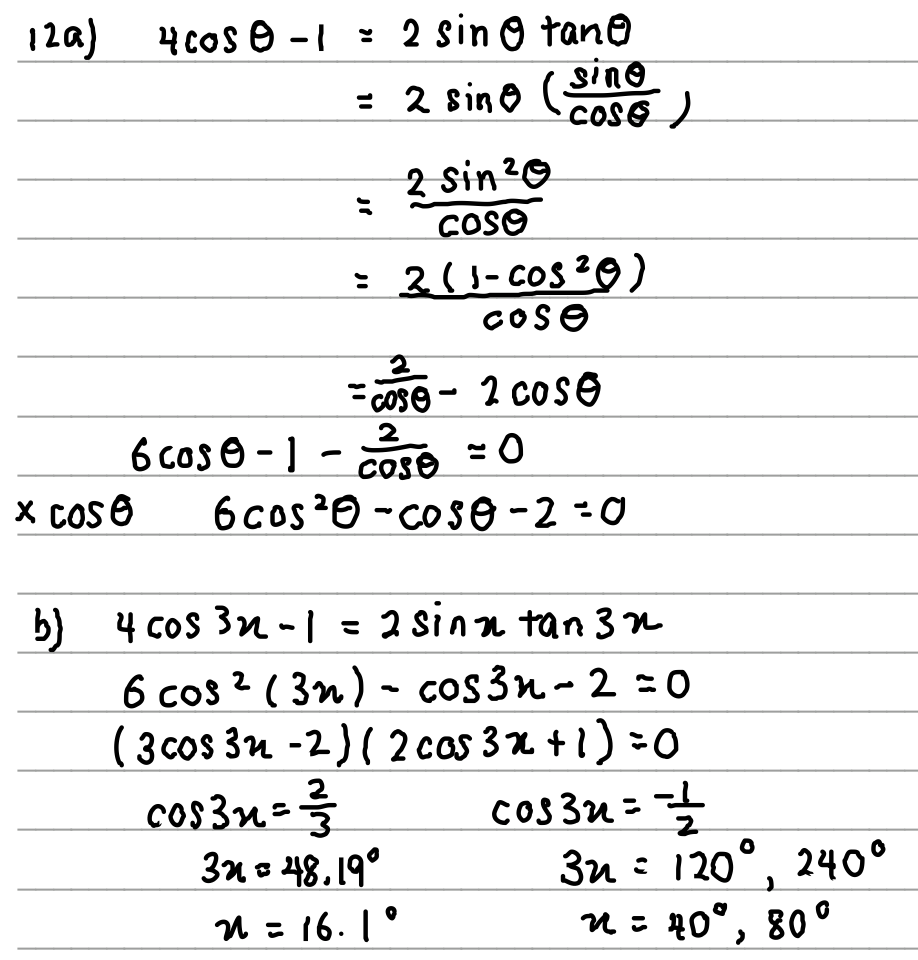 12a) 4cosθ - 1 = 2 sinθ tanθ
= 2 sinθ (sinθ/cosθ)
= 2 sin²θ/cosθ
= 2(1-cos²θ)/cosθ
= 2/cosθ - 2cosθ
6cosθ - 1 - 2/cosθ = 0
× cosθ 6cos²θ - cosθ - 2 = 0
b) 4cos3x - 1 = 2sinx tan3x
6cos²(3x) - cos3x - 2 = 0
(3cos3x - 2)(2cos3x + 1) = 0
cos3x = 2/3 cos3x = -1/2
3x = 48.19° 3x = 120°, 240°
x = 16.1° x = 40°, 80°